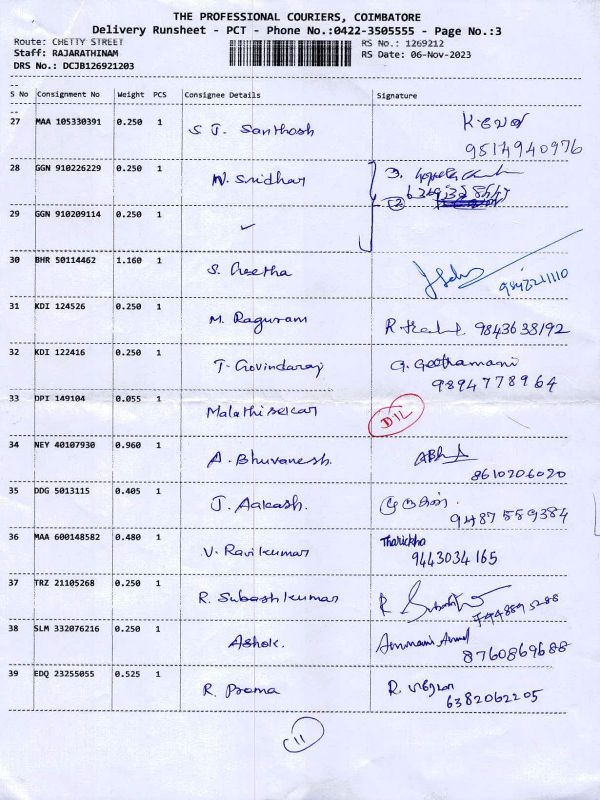 THE PROFESSIONAL COURIERS, COIMBATORE
Delivery Runsheet - PCT - Phone No.:0422-3505555 - Page No.:3
Route: CHETTY STREET RS No.: 1269212
Staff: RAJARATHINAM RS Date: 06-Nov-2023
DRS No.: DCJB126921203
S No Consignment No Weight PCS Consignee Details Signature
27 MAA 105330391 0.250 1 S J. Santhosh
9514940976
28 GGN 910226229 0.250 1 N. Sridhar
29 GGN 910209114 0.250 1 ✓
30 BHR 50114462 1.160 1 S. Geetha
31 KDI 124526 0.250 1 M. Raguram 9843638192
32 KDI 122416 0.250 1 T. Govindaraj G. Geethamani
9894778964
33 DPI 149104 0.055 1 Malathi sekar DIL
34 NEY 40107930 0.960 1 A. Bhuvanesh.
8610206020
35 DDG 5013115 0.405 1 J. Aakash. முருகன்.
9487559384
36 MAA 600148582 0.480 1 V. Ravikumar Tharickha
9443034165
37 TRZ 21105268 0.250 1 R. Subash kumar
38 SLM 332076216 0.250 1 Ashok.
8760869688
39 EDQ 23255055 0.525 1 R. Prema
6382062205
11